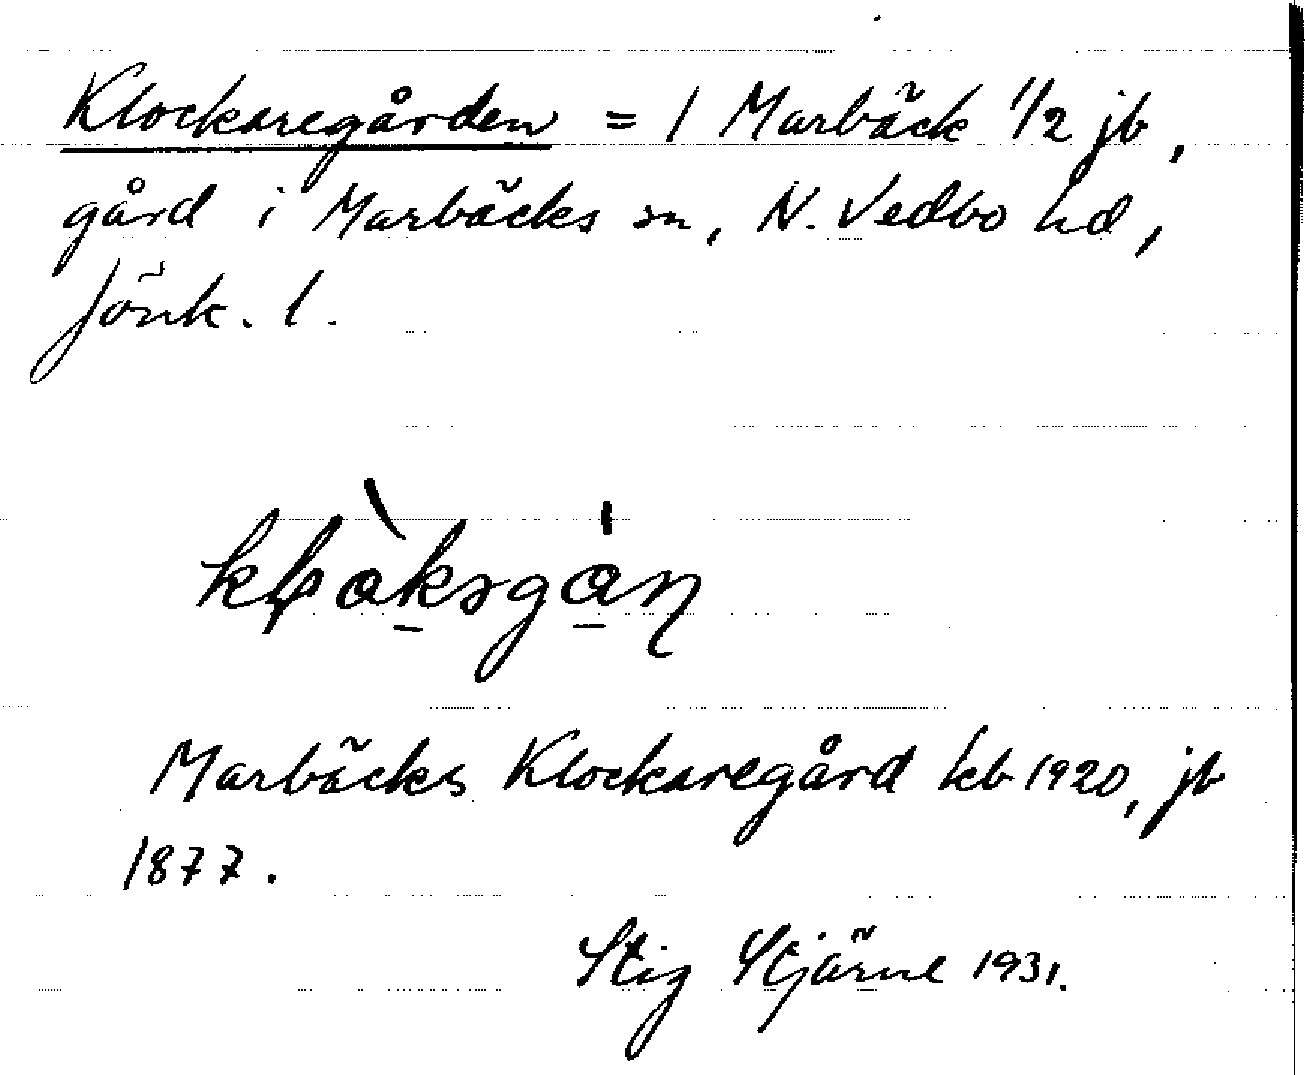 Klockaregården = 1 Marbäck 1/2 jb,
gård i Marbäcks sn, N. Vedbo hd,
Jönk. l.
Marbäcks Klockaregård kb 1920, jb
1877.
Stig Stjärne 1931.